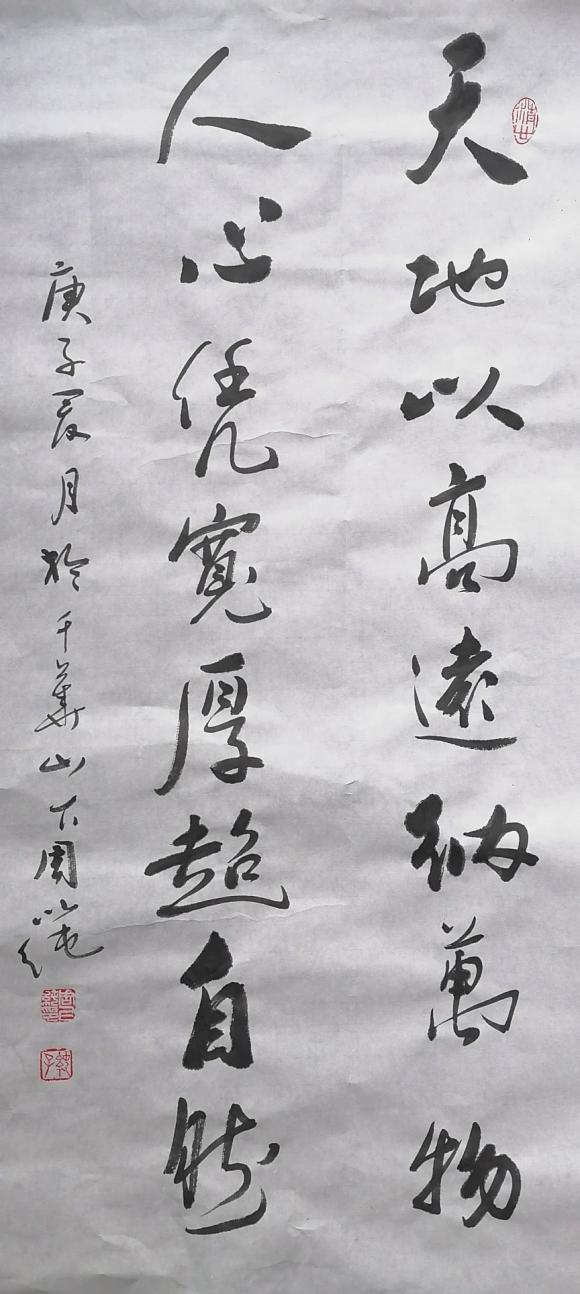 天地以高遠納萬物
人心凭寬厚超自然
庚子夏月於千華山下周純